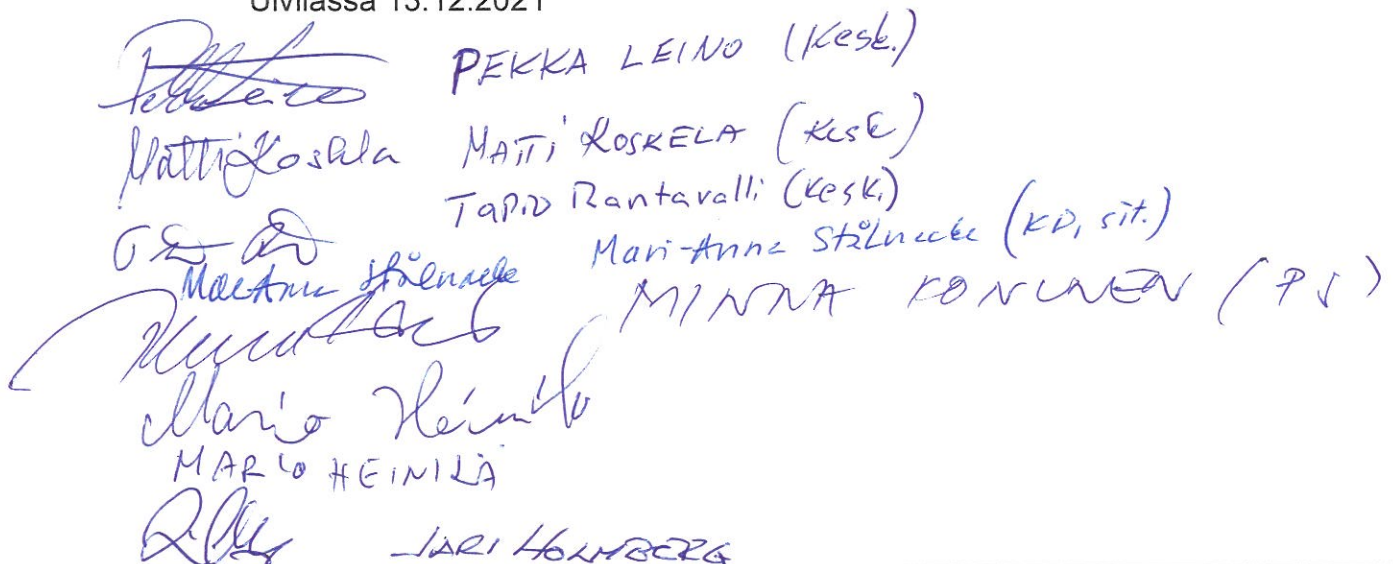 Ulvilassa 13.12.2021
PEKKA LEINO (Kesk.)
Matti Koskela MATTI KOSKELA (Kesk)
Tapio Rantavalli (Kesk.)
Mari-Anna Stålnacke Mari-Anna Stålnacke (KD, sit.)
MINNA KONUNEN (PS)
Marko Heinilä
MARKO HEINILÄ
JARI HOLMBERG